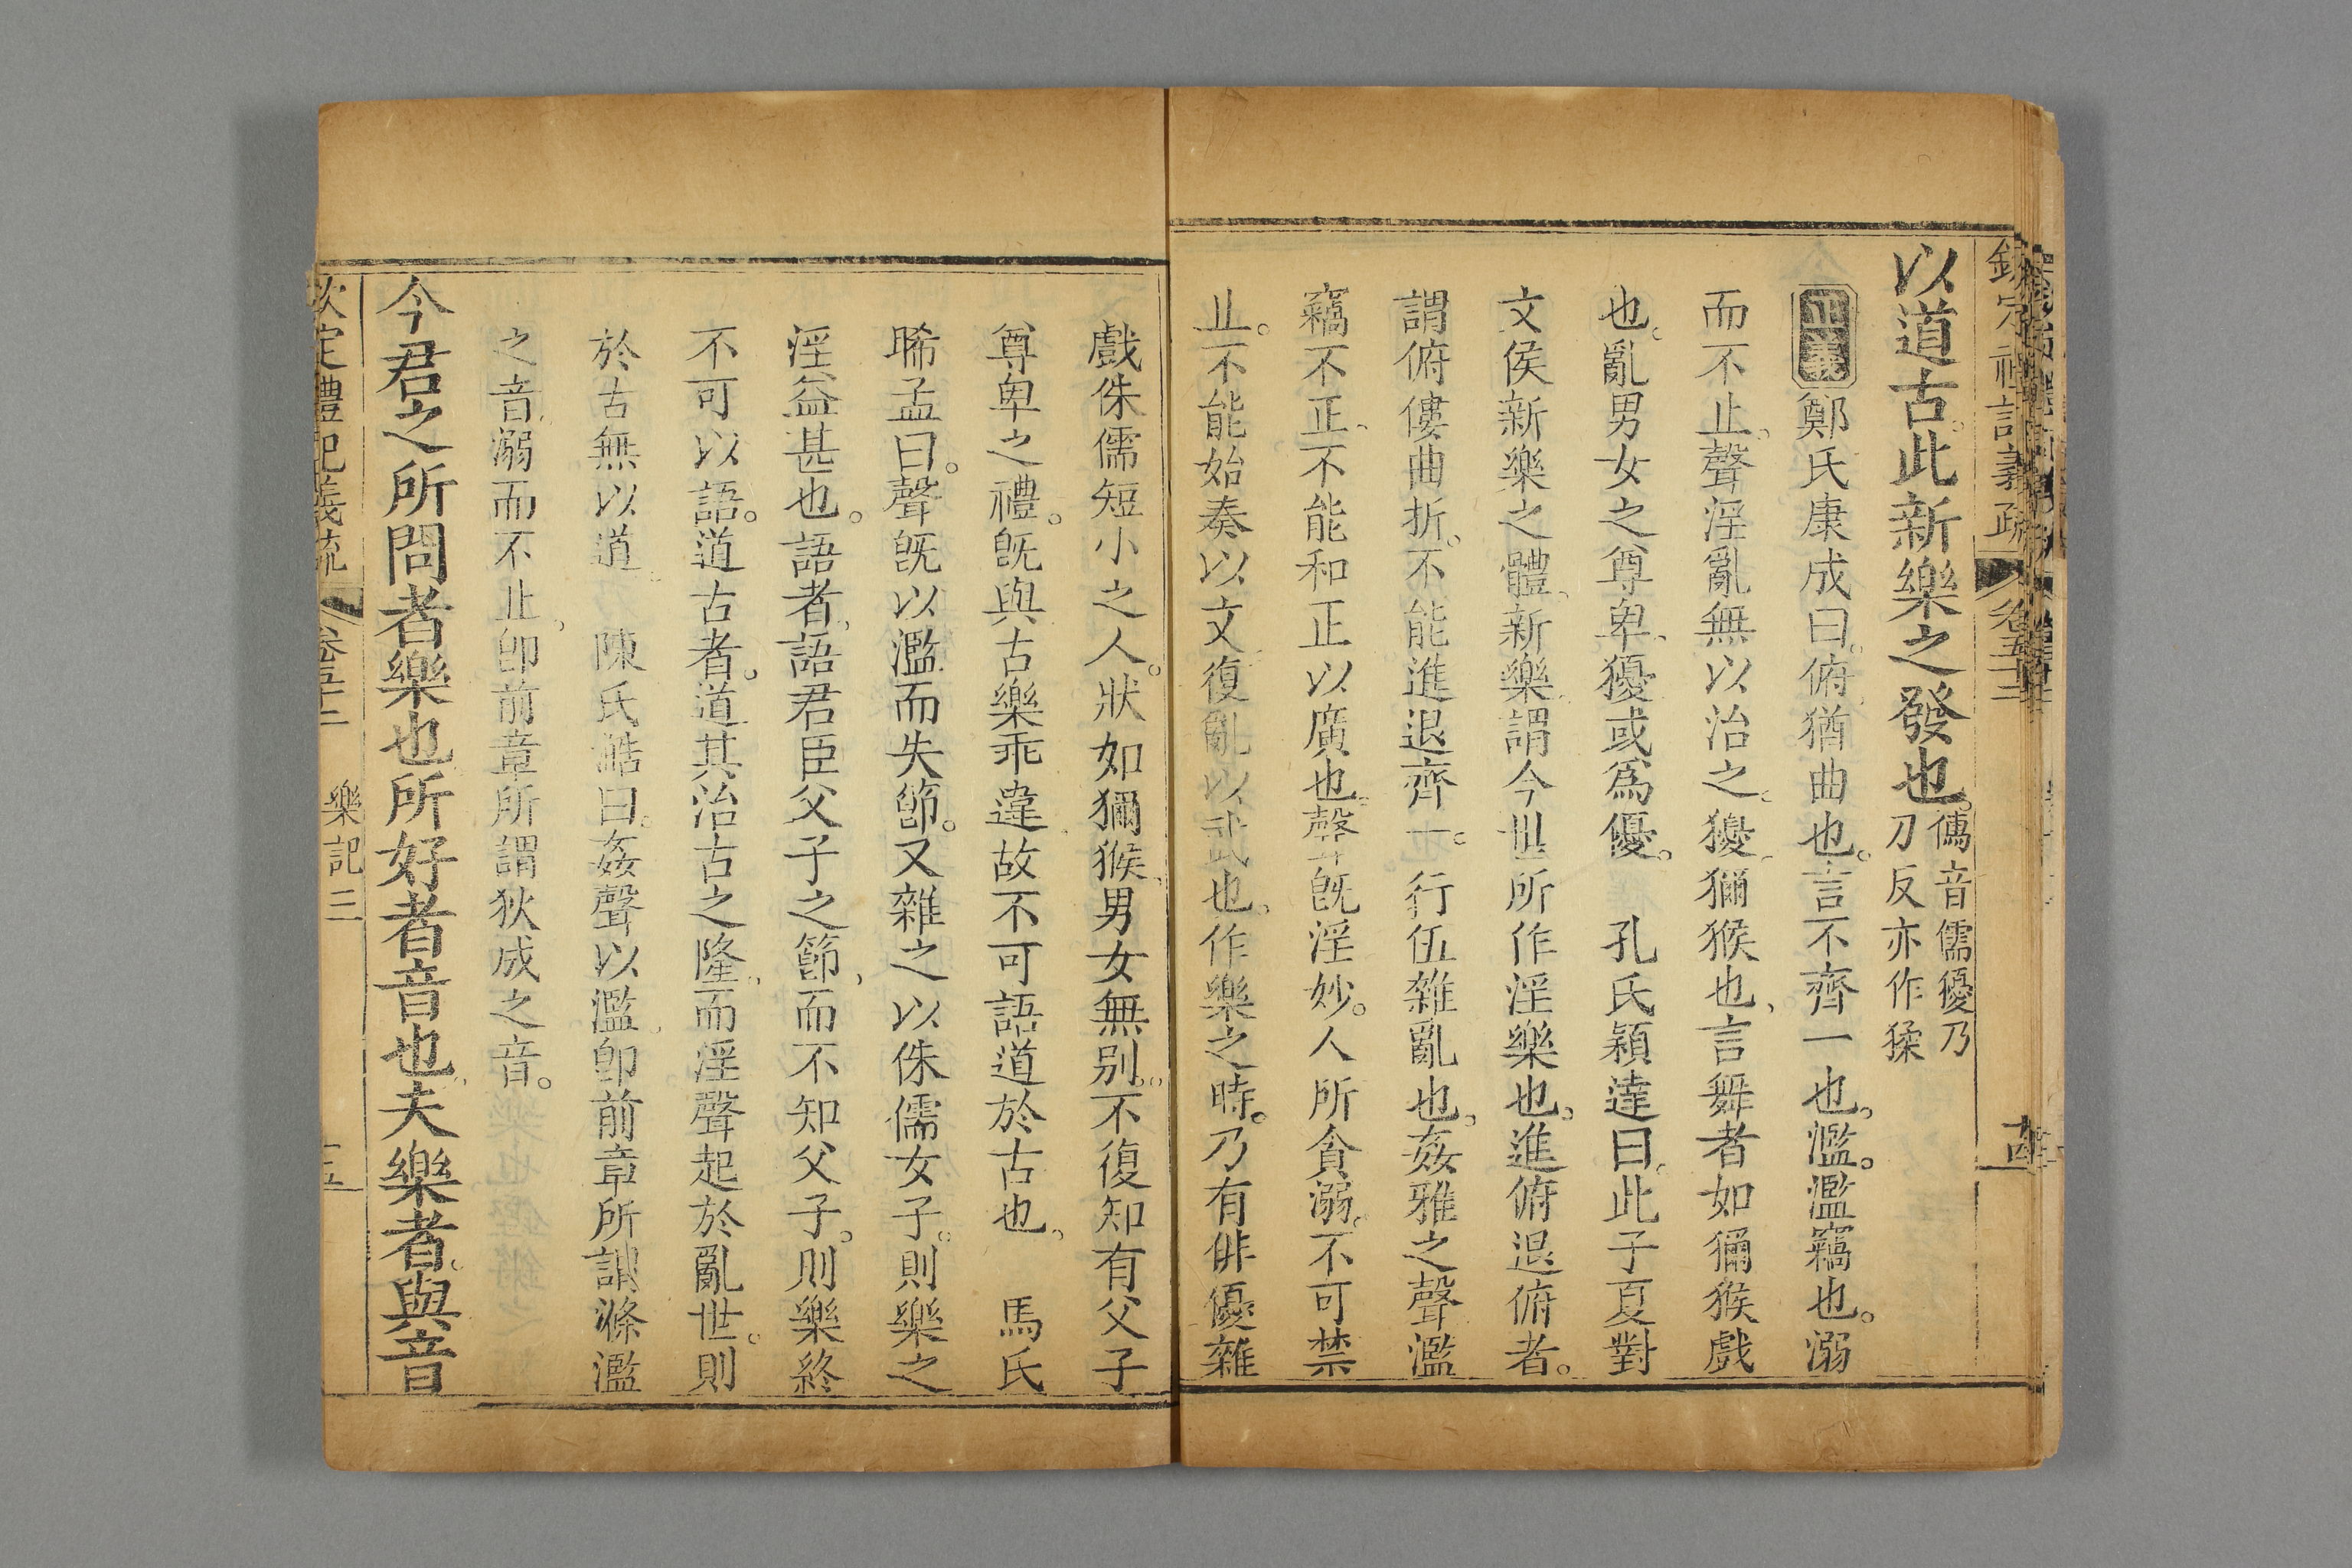 欽定禮記義疏 卷五十二 十四
以道古此新樂之發也。
㑄音儒獶乃
刀反亦作猱
正義鄭氏康成曰。俯猶曲也。言不齊一也。濫。濫竊也。溺
而不止。聲淫亂無以治之。獶獼猴也、言舞者如獼猴戲
也。亂男女之尊卑、獶或為優。 孔氏穎達曰。此子夏對
文侯新樂之體、新樂、謂今世所作淫樂也。進俯退俯者。
謂俯僂曲折、不能進退齊一也。行伍雜亂也。姦雅之聲濫
竊不正、不能和正以廣也。聲旣淫妙。人所貪溺。不可禁
止。不能始奏以文、復亂以武也。作樂之時。乃有俳優雜
戲侏儒短小之人。狀如獼猴、男女無別。不復知有父子
尊卑之禮。旣與古樂乖違、故不可語道於古也。 馬氏
晞孟曰。聲旣以濫而失節。又雜之以侏儒女子。則樂之
淫益甚也。語者、語君臣父子之節、而不知父子。則樂終
不可以語。道古者。道其治古之隆、而淫聲起於亂世。則
於古無以道。 陳氏澔曰。姦聲以濫、卽前章所謂滌濫
之音、溺而不止、卽前章所謂狄成之音。
今君之所問者樂也所好者音也。夫樂者。與音
欽定禮記義疏 卷五十二 樂記 三 十五